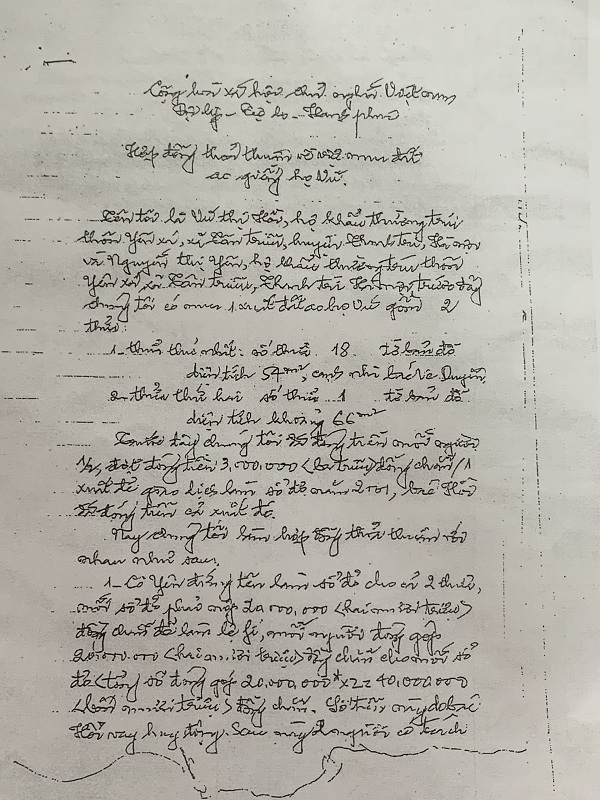 Cộng hoà xã hội chủ nghĩa Việt nam
Độc lập - Tự do - Hạnh phúc
Hợp đồng thoả thuận về việc mua đất
ao giếng họ Vũ.
Tên tôi là Vũ thị Hồi, hộ khẩu thường trú
thôn Yên xá, xã Tân triều, huyện Thanh trì, Hà nội
và Nguyễn thị Yên, hộ khẩu thường trú thôn
Yên xá xã Tân triều, Thanh trì Hà nội trước đây
chúng tôi có mua 1 xuất đất ao họ Vũ gồm 2
thửa:
1- thửa thứ nhất: số thửa 18 tờ bản đồ
diện tích 54m², cạnh nhà bác Duyên
2- thửa thứ hai số thửa 1 tờ bản đồ
diện tích khoảng 66m²
Trước đây chúng tôi đã đóng tiền mỗi người
1/2, đợt đóng tiền 3,000,000 (ba triệu) đồng chẵn/1
xuất để giao dịch làm sổ đỏ năm 2001, bác Hồi
đã đóng tiền cả xuất đó.
Nay chúng tôi làm hợp đồng thoả thuận với
nhau như sau,
1- Cô Yên đứng tên làm sổ đỏ cho cả 2 thửa,
mỗi sổ đỏ phải nộp 20.000,000 (hai mươi triệu)
đồng chẵn để làm lệ fí, mỗi người đóng góp
20.000.000 (hai mươi triệu) đồng chẵn cho mỗi sổ
đỏ (tổng số đóng góp 20,000,000đ x 2 = 40,000.000
(bốn mươi triệu) đồng chẵn. Số tiền này do bác
Hồi vay huy động. Sau này 2 người có trách